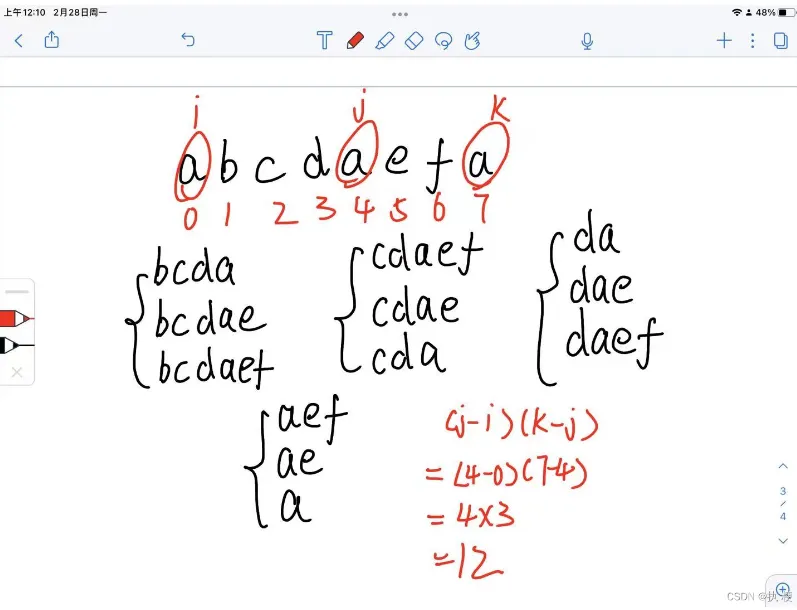 上午12:10 2月28日周一
48%
i j k
a b c d a e f a
0 1 2 3 4 5 6 7
bcda
bcdae
bcdaef
cdaef
cdae
cda
da
dae
daef
aef
ae
a
(j-i)(k-j)
=(4-0)(7-4)
=4×3
=12
3
/
4